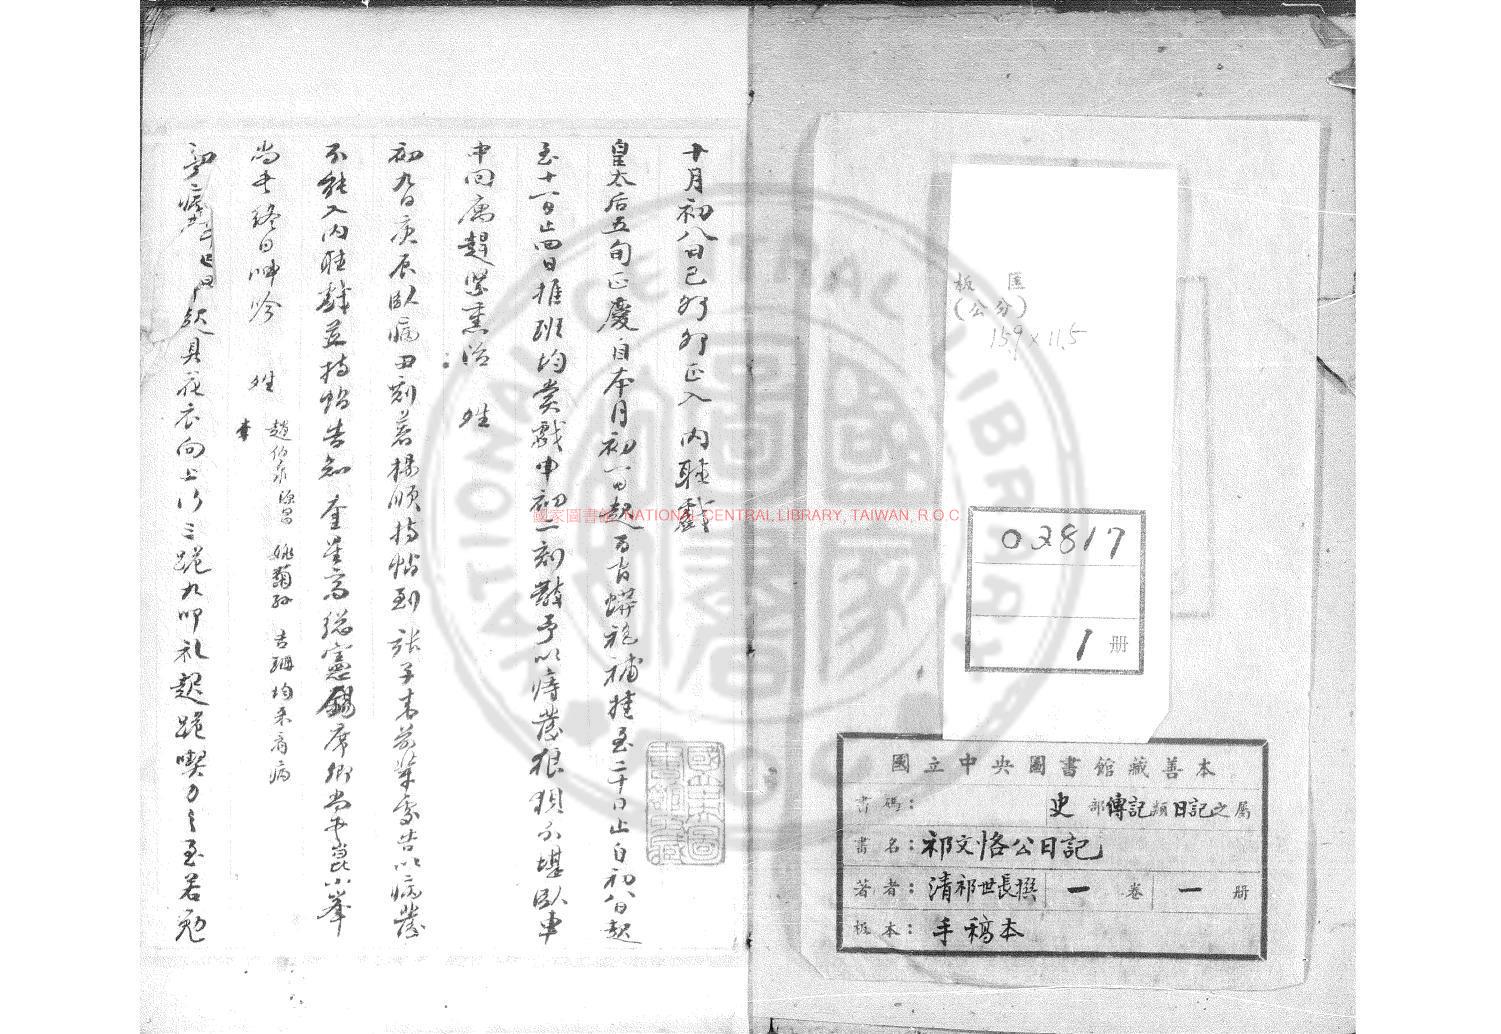 板匡
(公分)
15.9 x 11.5
02817
1 册
國立中央圖書館藏善本
書碼： 史部傳記類日記之屬
書名：祁文恪公日記
著者：清祁世長撰 一卷 一册
板本：手稿本
十月初八日己卯卯正入 內聽戲
皇太后五旬正慶自本月初一日起百官蟒袍補挂至二十日止自初八日起
至十一日止四日推班均賞戲申初一刻散予以痔發狼狽不堪臥車
中回寓趕緊熏洽 姓
初九日庚辰臥病丑刻若楊順持帖到 張子青前輩處告以病發
不能入內聽戲並持帖告知 奎星齋總憲錫席卿尚書崑小峯
尚書終日呻吟 姓 趙伯泉 姚菊孫 吉珊均來看病
具花衣向上行三跪九叩礼起跪喫力之至若勉
國家圖書館 NATIONAL CENTRAL LIBRARY, TAIWAN, R.O.C.
NATIONAL CENTRAL LIBRARY R.O.C.
國家圖書